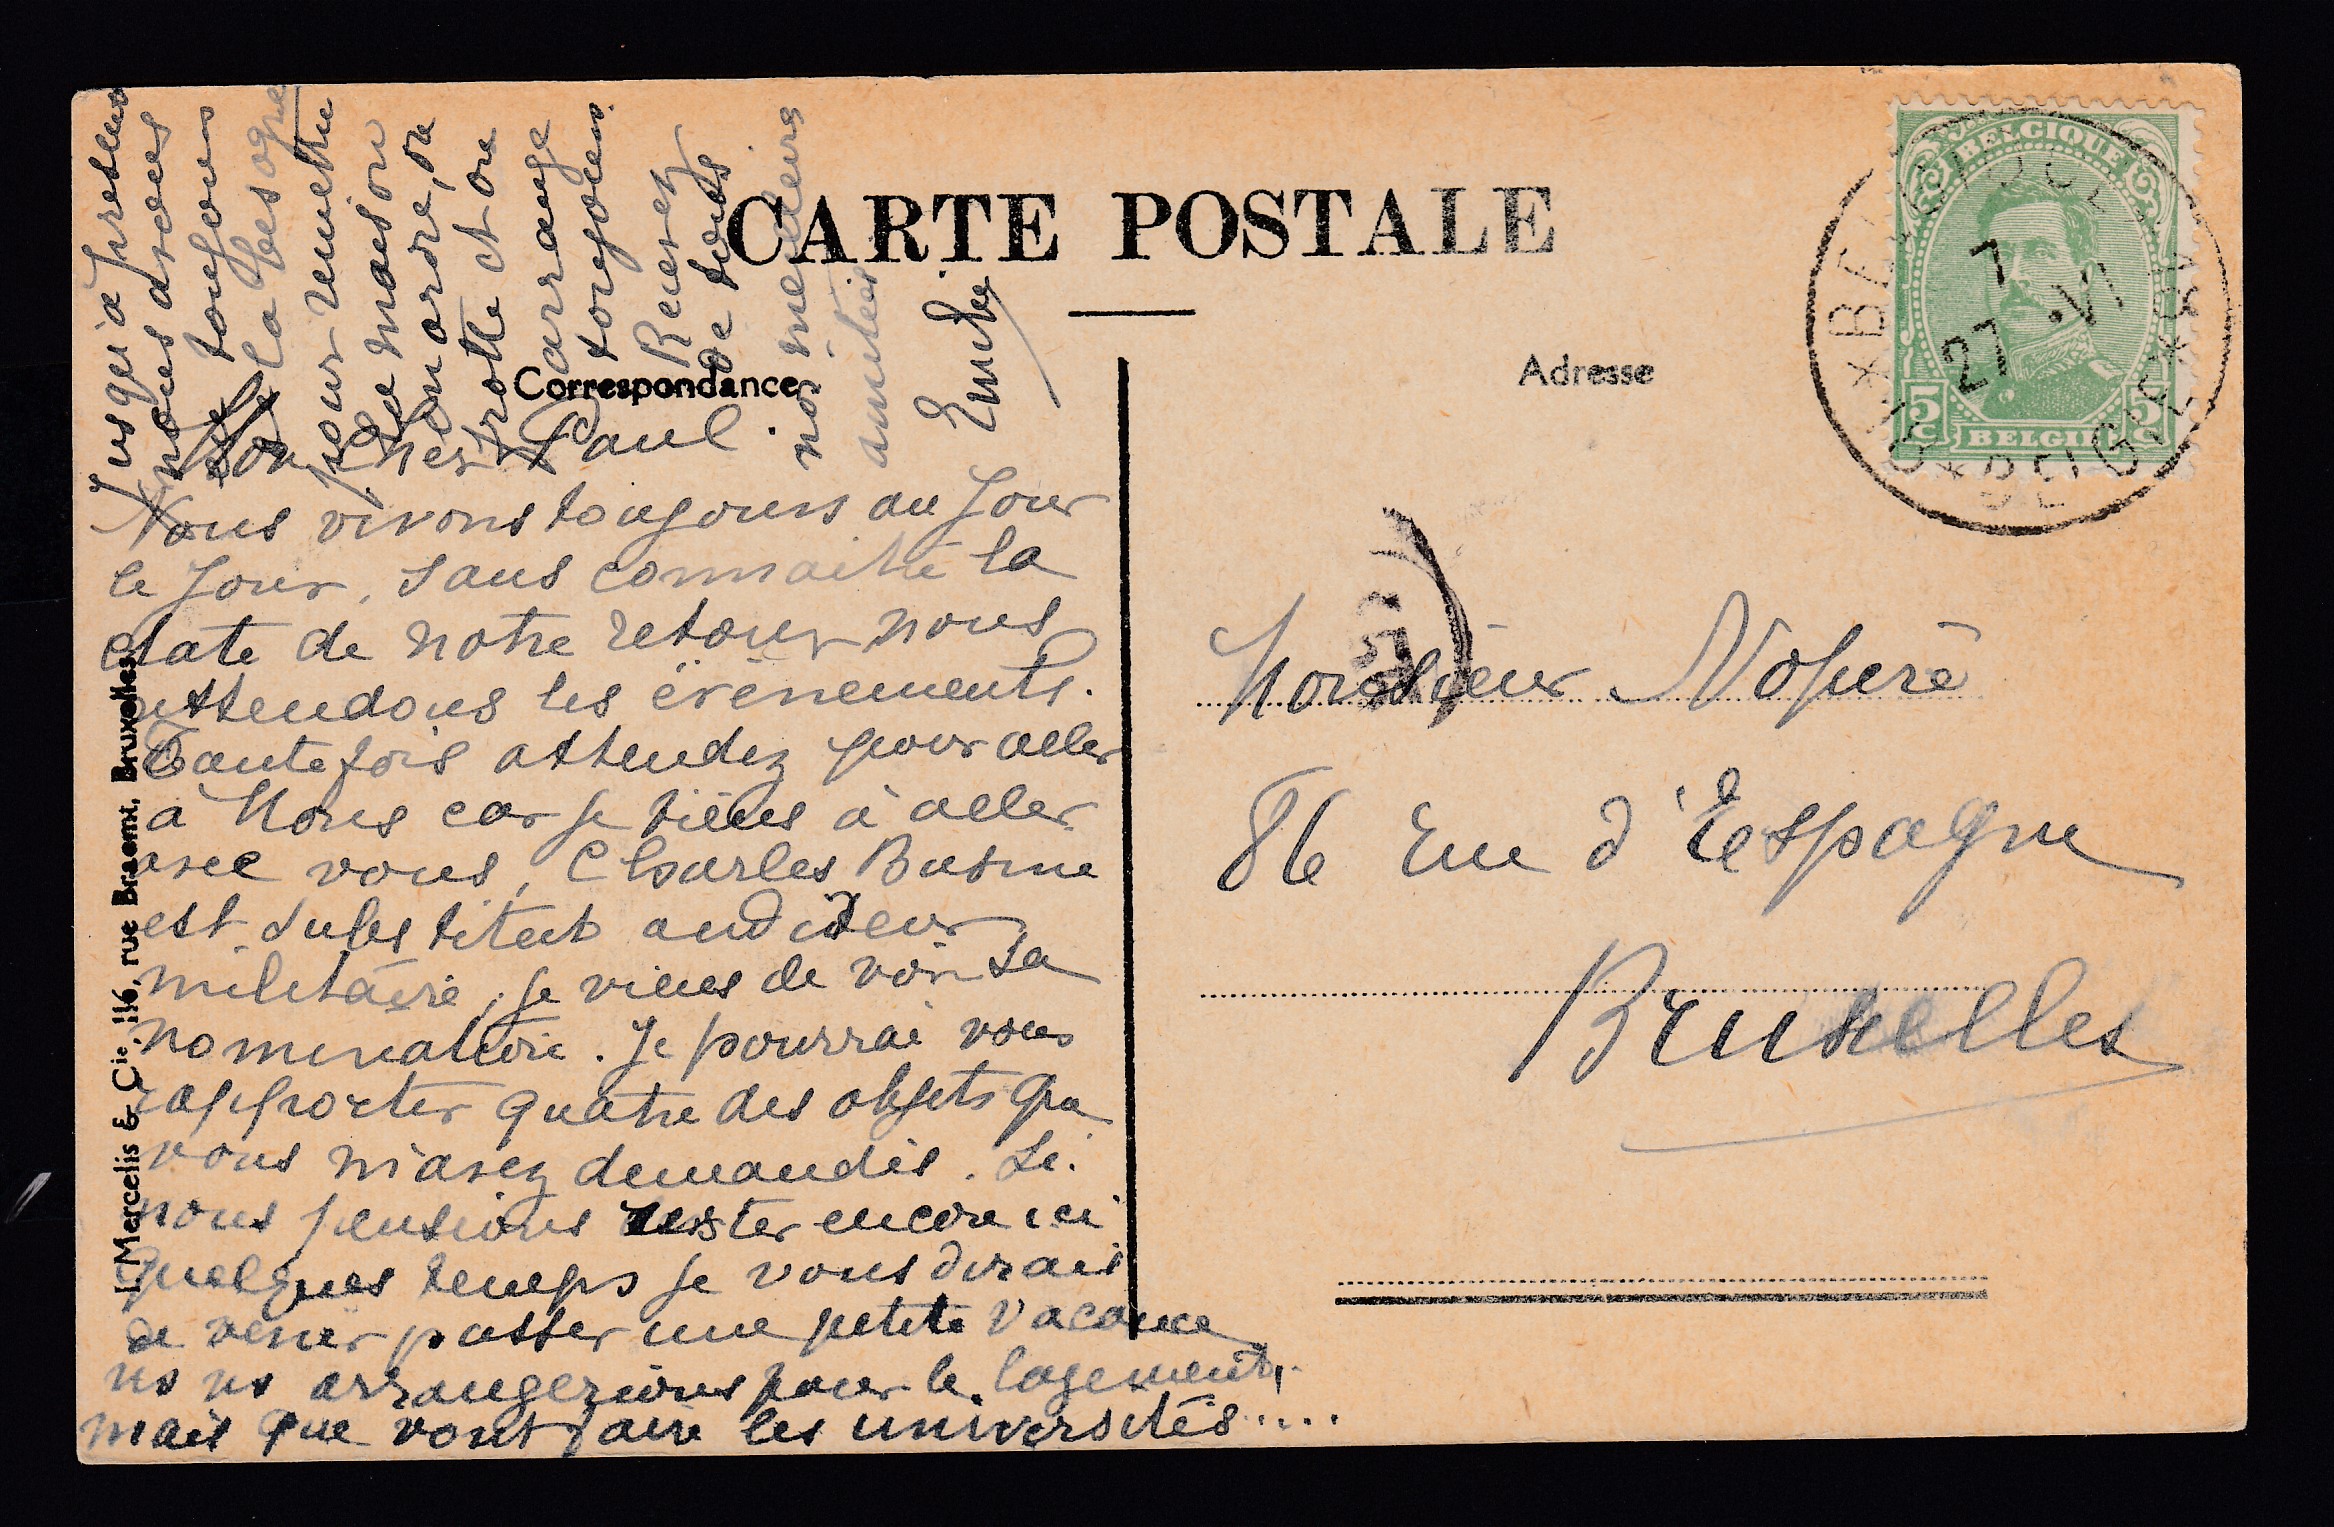 CARTE POSTALE
Correspondance
Adresse
Mon cher Paul.
Nous vivons toujours au jour
le jour, sans connaitre la
date de notre retour nous
attendons les évènements.
Toutefois attendez pour aller
à Mons car je tiens à aller
avec vous, Charles
est substitut auditeur
militaire, je viens de voir sa
nomination. Je pourrai vous
rapporter quatre des objets que
vous m'avez demandés. Si
nous pensions rester encore ici
quelques temps je vous dirais
de venir passer une petite vacance
ns ns arrangerions pour le logement,
mais que vont faire les universités.....
Jusqu'à présent
nous avons
toujours
de la besogne
pour remettre
la maison
en ordre, on
frotte et on
arrange
toujours
Recevez
de tous
nos meilleurs
amitiés
Monsieur Nopère
86 rue d'Espagne
Bruxelles
L. Mercelis & Cie, 116, rue Braemt, Bruxelles.
BELGIQUE
5 c 5 c
BELGIË
7
27 VI
BELGIQUE
BELGIE